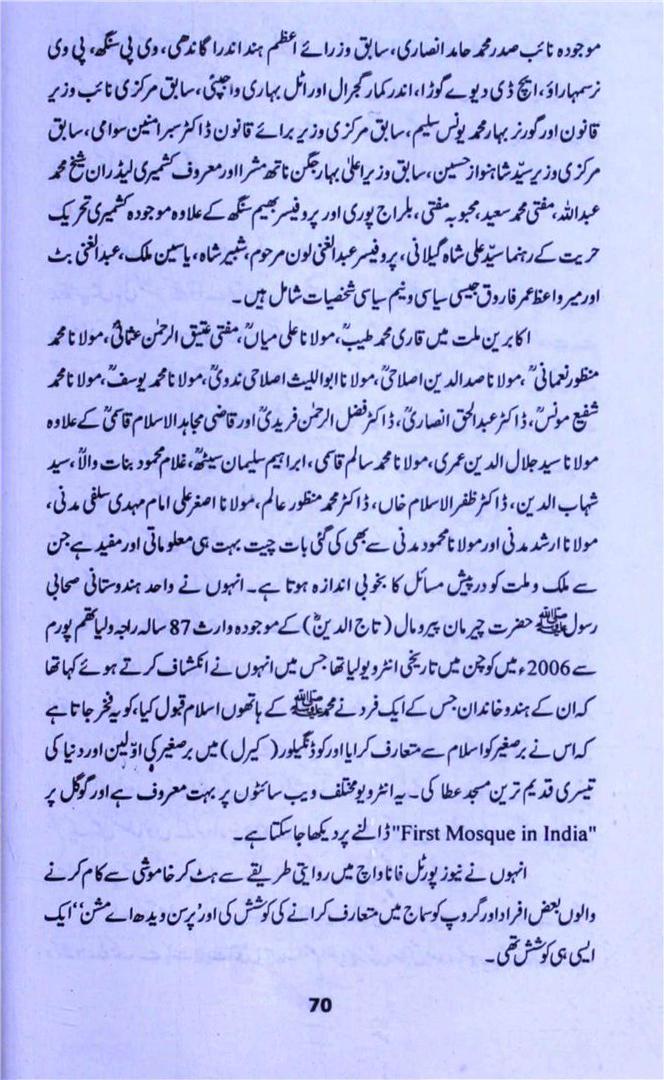 موجودہ نائب صدر محمد حامد انصاری، سابق وزرائے اعظم ہند اندرا گاندھی، وی پی سنگھ، پی وی
نرسمہاراؤ، ایچ ڈی دیوے گوڑا، اندر کمار گجرال اور اٹل بہاری واجپئی، سابق مرکزی نائب وزیر
قانون اور گورنر بہار محمد یونس سلیم، سابق مرکزی وزیر برائے قانون ڈاکٹر سبرامنین سوامی، سابق
مرکزی وزیر سیّد شاہنواز حسین، سابق وزیر اعلیٰ بہار جگن ناتھ مشرا اور معروف کشمیری لیڈران شیخ محمد
عبداللہ، مفتی محمد سعید، محبوبہ مفتی، بلراج پوری اور پروفیسر بھیم سنگھ کے علاوہ موجودہ کشمیری تحریک
حریت کے رہنما سیّد علی شاہ گیلانی، پروفیسر عبدالغنی لون مرحوم، شبیر شاہ، یاسین ملک، عبدالغنی بٹ
اور میر واعظ عمر فاروق جیسی سیاسی و نیم سیاسی شخصیات شامل ہیں۔
اکابرین ملت میں قاری محمد طیبؒ، مولانا علی میاںؒ، مفتی عتیق الرحمٰن عثمانیؒ، مولانا محمد
منظور نعمانیؒ، مولانا صدرالدین اصلاحیؒ، مولانا ابواللیث اصلاحی ندویؒ، مولانا محمد یوسفؒ، مولانا محمد
شفیع مونسؒ، ڈاکٹر عبدالحق انصاریؒ، ڈاکٹر فضل الرحمٰن فریدیؒ اور قاضی مجاہد الاسلام قاسمیؒ کے علاوہ
مولانا سید جلال الدین عمری، مولانا محمد سالم قاسمی، ابراہیم سلیمان سیٹھؒ، غلام محمود بنات والاؒ، سید
شہاب الدین، ڈاکٹر ظفر الاسلام خاں، ڈاکٹر محمد منظور عالم، مولانا اصغر علی امام مہدی سلفی مدنی،
مولانا ارشد مدنی اور مولانا محمود مدنی سے بھی کی گئی بات چیت بہت ہی معلوماتی اور مفید ہے جن
سے ملک و ملت کو درپیش مسائل کا بخوبی اندازہ ہوتا ہے۔ انہوں نے واحد ہندوستانی صحابی
رسولﷺ حضرت چیرمان پیرومال (تاج الدینؓ) کے موجودہ وارث 87 سالہ راجہ ولیاتھم پورم
سے 2006ء میں کوچن میں تاریخی انٹرویو لیا تھا جس میں انہوں نے انکشاف کرتے ہوئے کہا تھا
کہ ان کے ہندو خاندان جس کے ایک فرد نے محمدﷺ کے ہاتھوں اسلام قبول کیا، کو یہ فخر جاتا ہے
کہ اس نے برصغیر کو اسلام سے متعارف کرایا اور کوڈنگیلور (کیرل) میں برصغیر کی اوّلین اور دنیا کی
تیسری قدیم ترین مسجد عطا کی۔ یہ انٹرویو مختلف ویب سائٹوں پر بہت معروف ہے اور گوگل پر
"First Mosque in India" ڈالنے پر دیکھا جاسکتا ہے۔
انہوں نے نیوز پورٹل فانا واچ میں روایتی طریقے سے ہٹ کر خاموشی سے کام کرنے
والوں بعض افراد اور گروپ کو سماج میں متعارف کرانے کی کوشش کی اور ’پرسن ویدھ اے مشن‘‘ ایک
ایسی ہی کوشش تھی۔
70